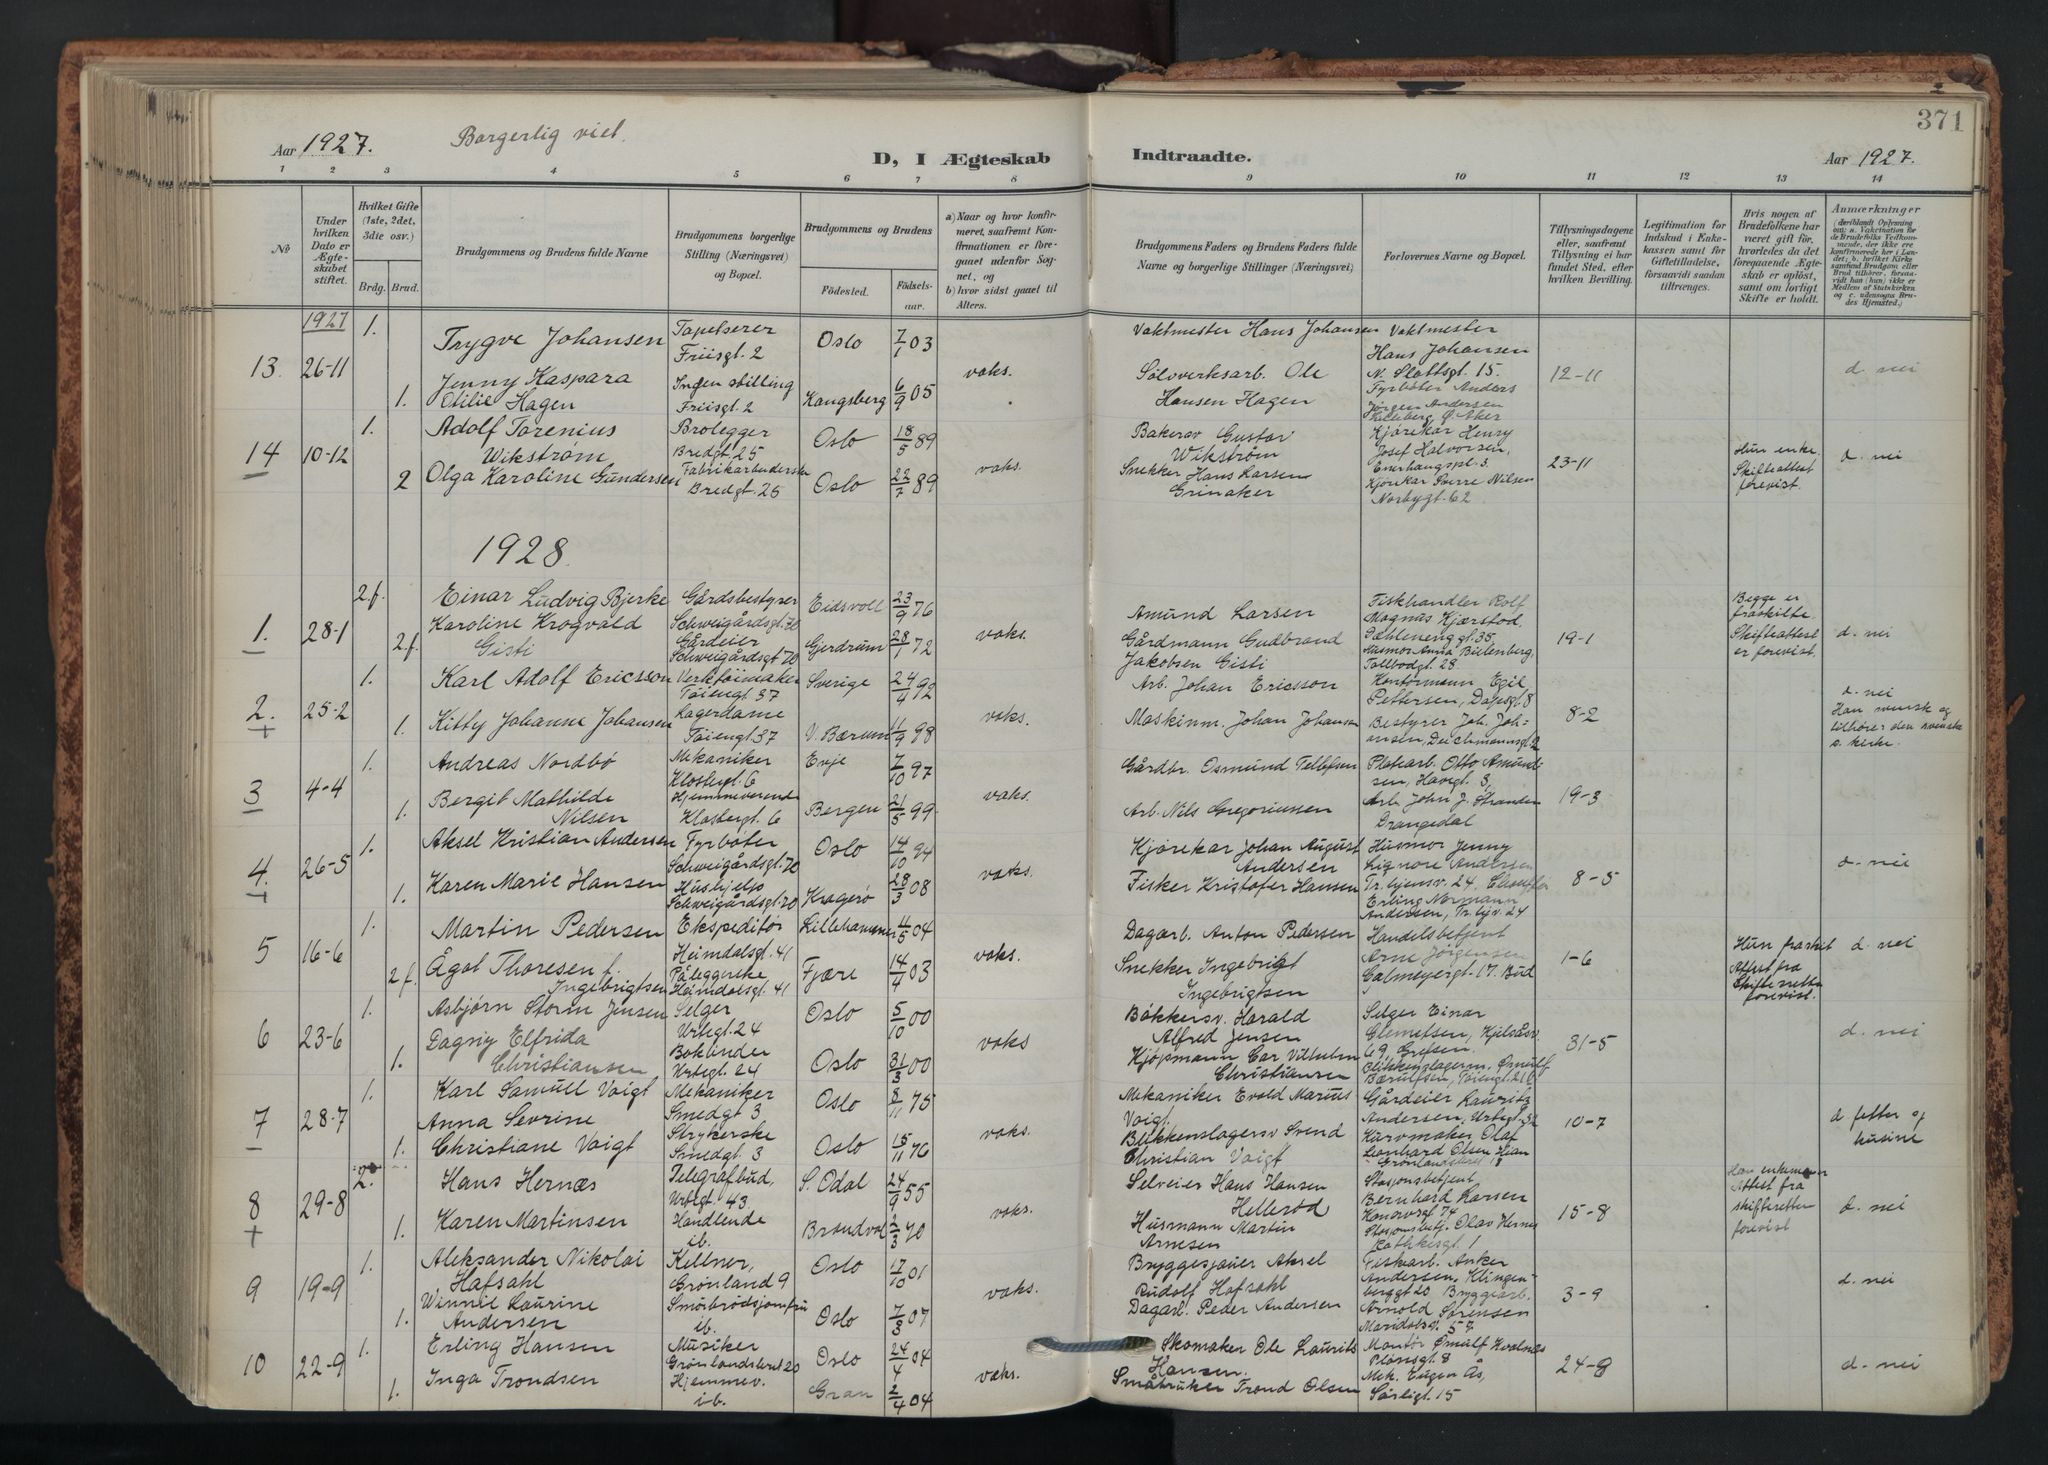 371
Aar 1927. Borgerlig viet. D, I Ægteskab Indtraadte. Aar 1927.
1 2 3 4 5 6 7 8 9 10 11 12 13 14
No
Under hvilken Dato er Ægteskabet stiftet.
Hvilket Gifte (1ste, 2det, 3die osv.)
Brdg. Brud.
Brudgommens og Brudens fulde Navne
Brudgommens borgerlige Stilling (Næringsvei) og Bopæl.
Brudgommens og Brudens
Fødested. Fødselsaar.
a) Naar og hvor konfirmeret, saafremt Konfirmationen er foregaaet udenfor Sognet, og
b) hvor sidst gaaet til Alters.
Brudgommens Faders og Brudens Faders fulde Navne og borgerlige Stillinger (Næringsvei)
Forlovernes Navne og Bopæl.
Tillysningsdagene eller, saafremt Tillysning ei har fundet Sted, efter hvilken Bevilling.
Legitimation for Indskud i Enkekassen samt for Giftetilladelse, forsaavidt saadan tiltrænges.
Hvis nogen af Brudefolkene har været gift før, hvorledes da det foregaaende Ægteskab er opløst, samt om lovligt Skifte er holdt.
Anmærkninger
1927
13. 26-11 1.
Trygve Johansen
Tapetserer
Friisgt. 2
Oslo 7/1 03
vaks.
Vaktmester Hans Johansen
Vaktmester
Hans Johansen
N. Slottsgt. 15.
12-11
d. nei
1.
Jenny Kaspara
Otilie Hagen
Ingen stilling
Friisgt. 2
Kongsberg 6/9 05
Sølvverksarb. Ole
Hansen Hagen
Fyrbøter Anders
Jørgen Andersen
Ø. Aker
14 10-12 1.
Adolf Torenius
Wikstrøm
Brolegger
Bredgt. 25
Oslo 18/5 89
vaks.
Bakersv Gustav
Wikstrøm
Kjørekar Henry
Josef Halvorsen,
Enerhaugspl. 3.
23-11
Hun enke.
Skifteattest
forevist.
d. nei
2
Olga Karoline Gundersen
Fabrikarbeiderske
Bredgt. 25
Oslo 22/7 89
Snekker Hans Larsen
Grinaker
Kjørekar Sverre Nilsen
Norbygt. 62
1928
1. 28-1 2.f.
Einar Ludvig Bjerke
Gårdsbestyrer
Schweigårdsgt. 70
Eidsvoll 23/9 76
vaks.
Amund Larsen
Fiskhandler Rolf
Magnus Kjærstad
Dæhlenenggt. 35,
19-1
Begge er
fraskilte
Skifteattest
er forevist.
d. nei
2.f.
Karoline Krogvald
Gisti
Gårdeier
Schweigårdsgt 70
Gjerdrum 28/1 72
Gårdmann Gudbrand
Jakobsen Gisti
Husmor Anna Bielenberg
Tollbodgt. 28
2. 25-2 1.
Karl Adolf Ericsson
Verktøimaker
Tøiengt. 37
Sverige 24/4 92
vaks.
Arb. Johan Ericsson
Kontormann Egil
Pettersen, Dapsgt. 8
8-2
d. nei
Han svensk og
tilhører den svenske
s. kirke.
1.
Kitty Johanne Johansen
Lagerdame
Tøiengt. 37
V. Bærum 11/9 98
Maskinm. Johan Johansen
Bestyrer Joh. Joh-
ansen, Deichmannsgt. 2
3 4-4 1.
Andreas Nordbø
Mekaniker
Klostergt. 6
Evje 7/10 97
vaks.
Gårdbr. Osmund Tellefsen
Platearb. Otto Amund-
sen, Havregt. 3,
19-3
1.
Bergit Mathilde
Nilsen
Hjemmeværende
Klostergt. 6
Bergen 21/5 99
Arb. Nils Gregoriussen
Arb. John J. Stranden
Drangedal
4. 26-5 1.
Aksel Kristian Andersen
Fyrbøter
Schweigårdsgt. 70
Oslo 14/10 94
vaks.
Kjørekar Johan August
Andersen
Husmor Jenny
Signore Andersen
Tr.hjemsv. 24,
8-5
d. nei
1.
Karen Marie Hansen
Hushjelp
Schweigårdsgt. 70
Kragerø 28/3 08
Fisker Kristofer Hansen
Chauffør
Erling Normann
Andersen, Tr.hjv. 24
5 16-6 1.
Martin Pedersen
Ekspeditør
Heimdalsgt. 41
Lillehammer 4/5 04
vaks.
Dagarb. Anton Pedersen
Handelsbetjent
Arne Jørgensen
Calmeyergt. 17. Bud
1-6
Hun fraskilt
Attest fra
Skifteretten
forevist.
d. nei
2 f.
Ågot Thoresen f.
Ingebrigtsen
Påleggerske
Heimdalsgt. 41
Fjære 14/4 03
Snekker Ingebrigt
Ingebrigtsen
6 23-6 1.
Asbjørn Storm Jensen
Selger
Urtegt. 24
Oslo 5/10 00
vaks
Bøkkersv. Harald
Alfred Jensen
Selger Einar
Clemetsen, Kjelsåsv.
69, Grefsen.
31-5
d. nei
1.
Dagny Elfrida
Christiansen
Bokbinder
Urtegt. 24
Oslo 31/3 00
Kjøpmann Car Vilhelm
Christiansen
Blikkenslagerm. Ørnulf
Bærulfsen, Tøiengt. 21 b
7 28-7 1.
Karl Samuel Voigt
Mekaniker
Smedgt 3
Oslo 8/11 75
vaks.
Mekaniker Evald Marius
Voigt.
Gårdeier Lauritz
Andersen, Urtegt. 32
10-7
d. fetter og
kusine
1.
Anna Sevrine
Christiane Voigt
Strykerske
Smedgt. 3
Oslo 15/11 76
Blikkenslagersv Svend
Christian Voigt
Kurvmaker Olaf
Leonhard Olsen Hean
Grønlandsleret 18
8 29-8 2.
Hans Hernæs
Telegrafbud,
Urtegt. 43
S. Odal 24/9 55
vaks.
Selveier Hans Hansen
Hellerød
Stasjonsbetjent
Bernhard Larsen
74
15-8
Han enkemann
Attest fra
skifteretten
forevist
d. nei
1.
Karen Martinsen
Handlende
ib.
Brandval 2/3 70
Husmann Martin
Arnesen
Stasjonsbetj. Olav Hernes
Rathkesgt. 1
9 19-9 1.
Aleksander Nikolai
Hafsahl
Kellner,
Grønland 9
Oslo 17/10 01
vaks.
Bryggesjauer Aksel
Rudolf Hafsahl
Fiskearb. Anker
Andersen, Klingen-
berggt 20 Bryggearb.
3-9
d. nei
1.
Winnie Laurine
Andersen
Smørbrødsjomfru
ib.
Oslo 7/3 07
Dagarb. Peder Andersen
Arnold Sørensen
Maridalsg. 57.
10 22-9 1.
Erling Hansen
Musiker
Grønlandsleret 20
Oslo 24/4 04
vaks.
Skomaker Ole Laurits
Hansen.
Montør Ørnulf Kvalnes
Plønsgt. 8
24-8
d. nei
1.
Inga Trondsen
Hjemmev.
ib.
Gran 2/4 04
Småbruker Trond Olsen
Mek. Eugen Ås,
Sørligt. 15